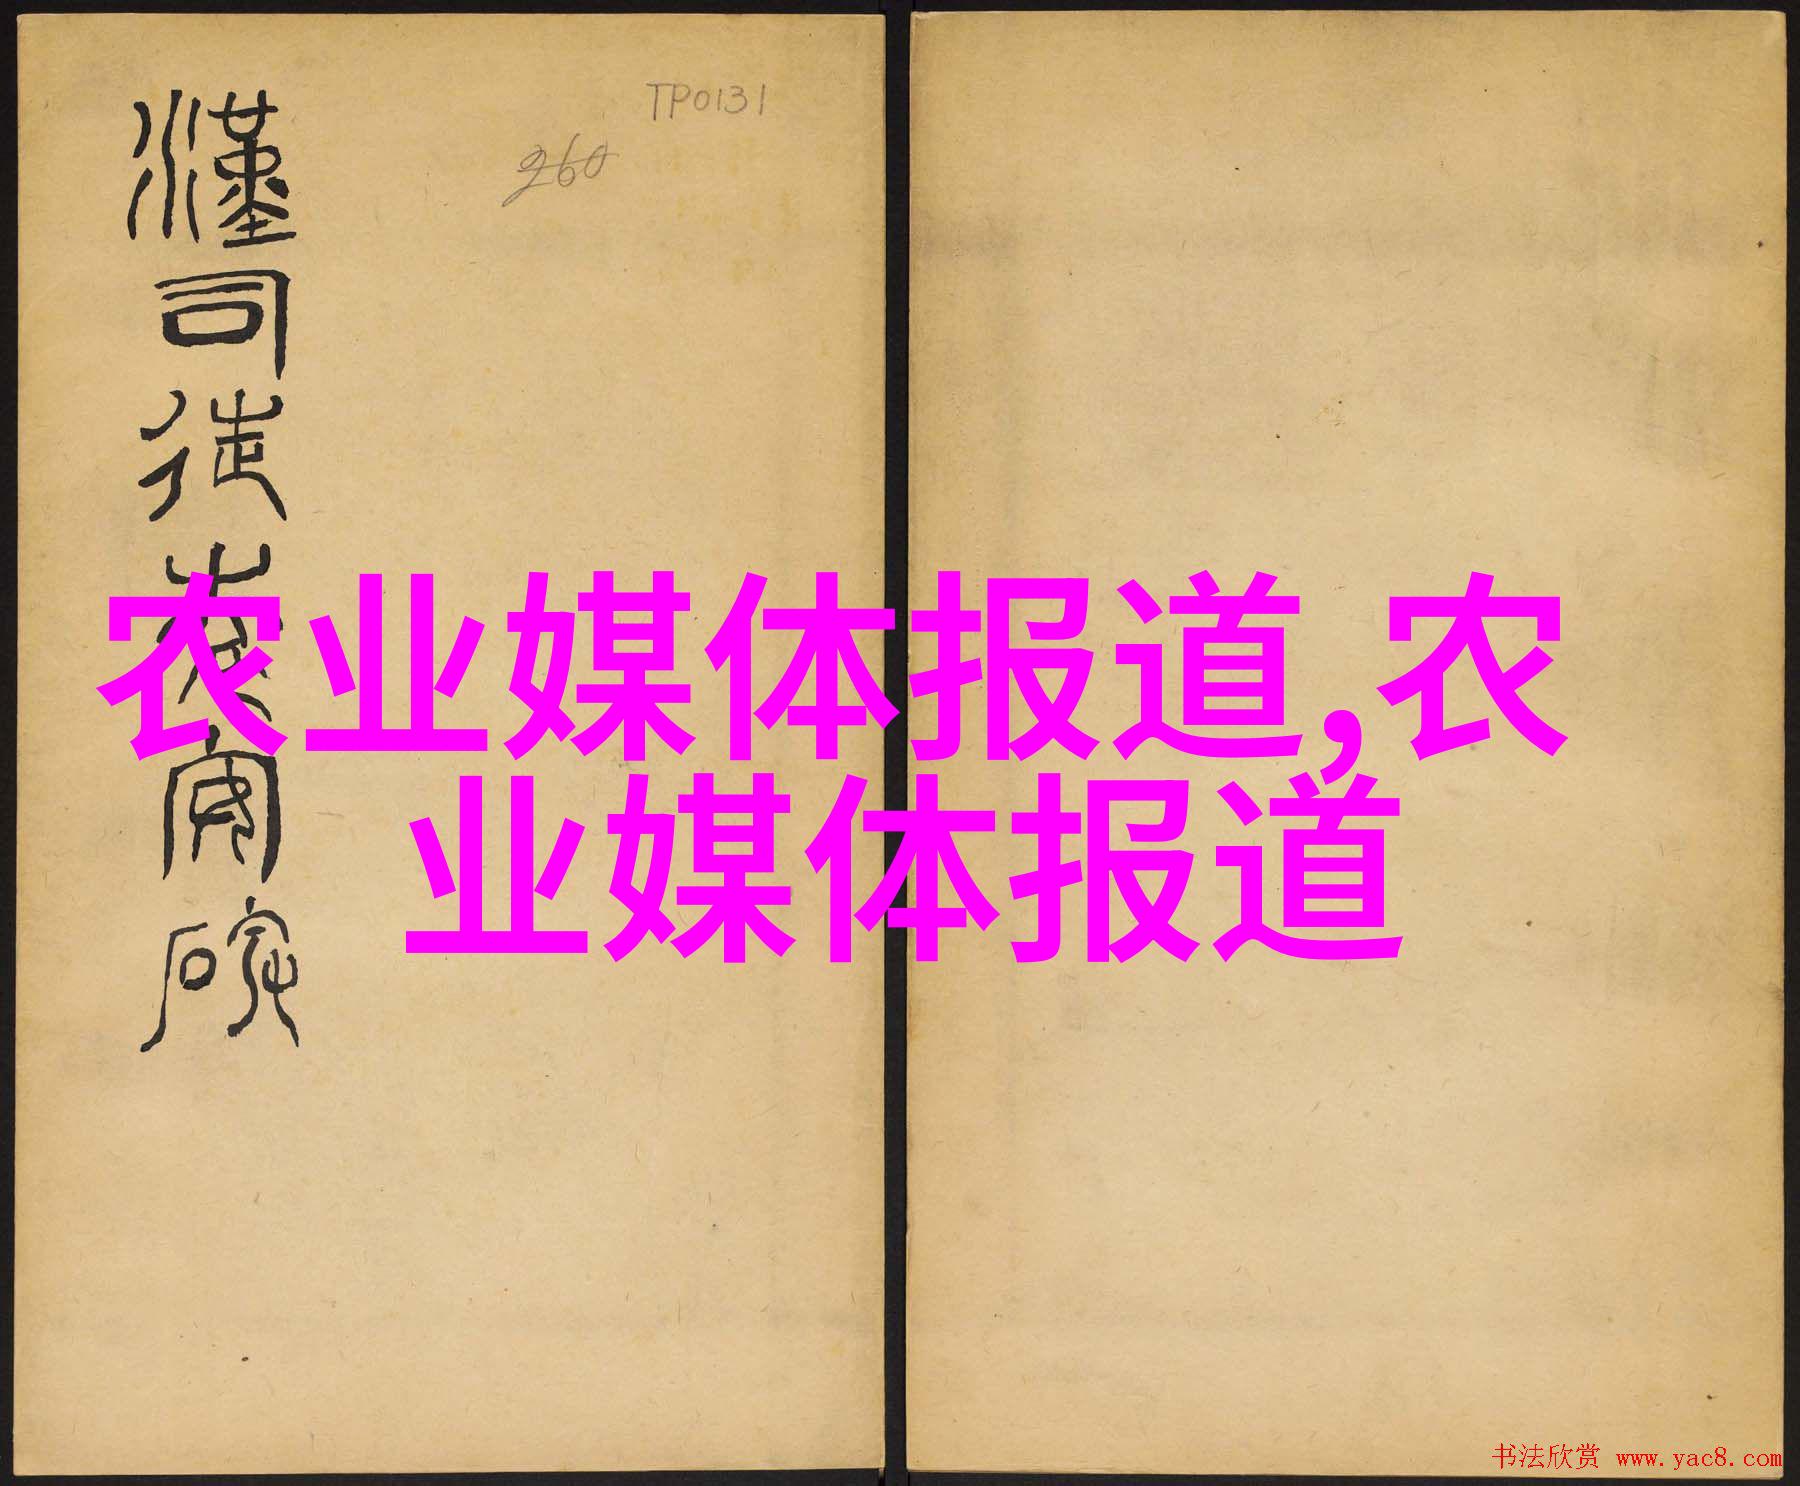 漢司徒袁安碑
TP0131
260
农业媒体报道,农
业媒体报道
书法欣赏 www.yac8.com